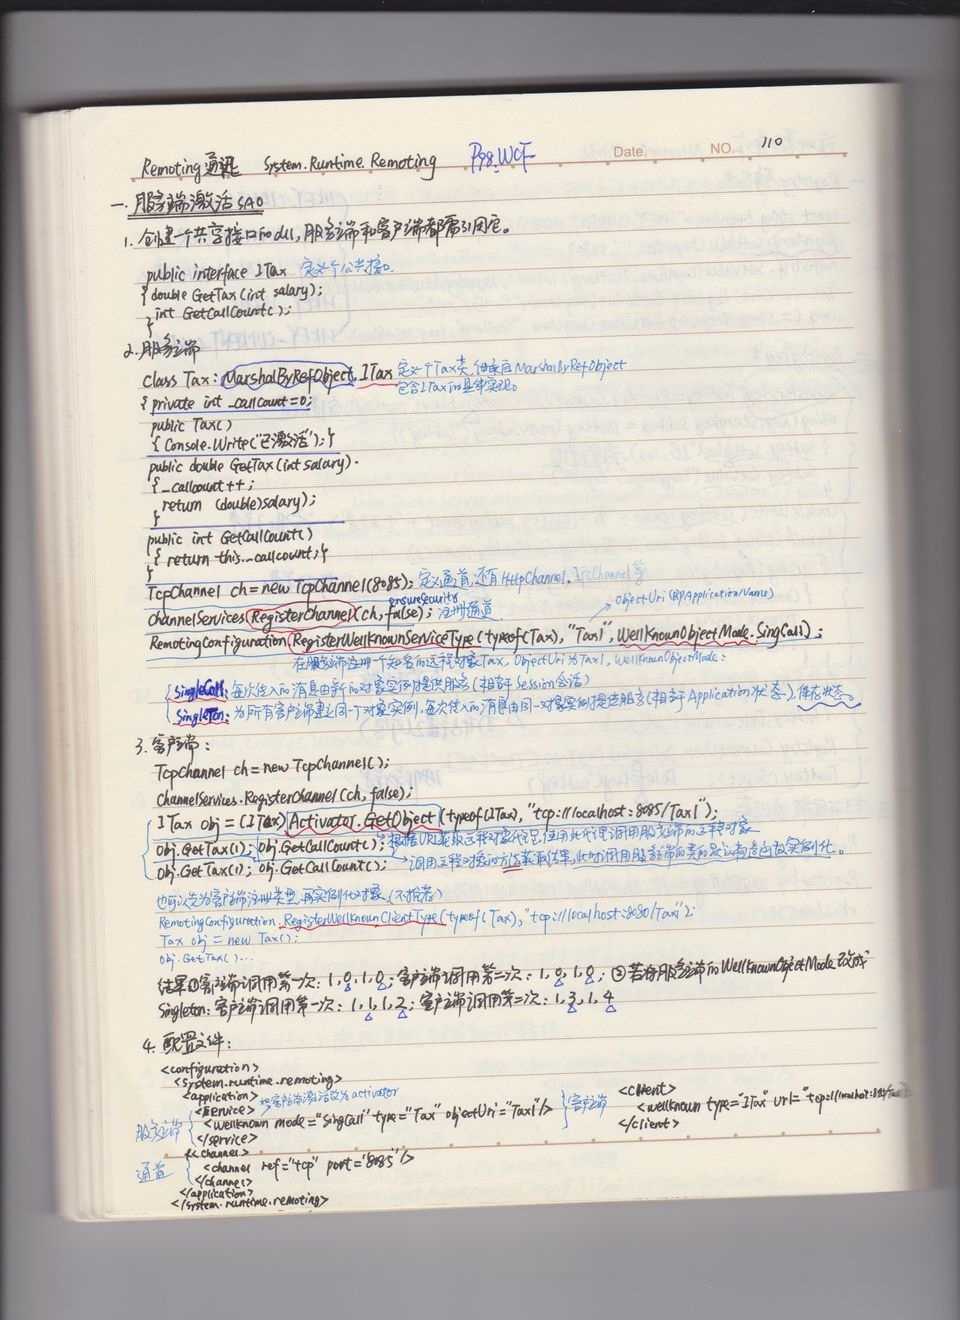 Remoting 通讯 System.Runtime.Remoting P98.WCF Date. NO. 110
一. 服务端激活SAO
1. 创建一个共享接口的dll,服务端和客户端都需引用它。
public interface ITax 定义个公共接口
{ double GetTax(int salary);
int GetCallCount();
}
2. 服务端
class Tax: MarshalByRefObject, ITax 定义个Tax类,继承自MarshalByRefObject
包含ITax的具体实现。
{ private int _callcount=0;
public Tax()
{ Console.Write("已激活"); }
public double GetTax(int salary).
{ _callcount++;
return (double)salary);
}
public int GetCallCount()
{ return this._callcount; }
}
TcpChannel ch=new TcpChannel(8085); 定义通道,还有HttpChannel, IpcChannel等
ensureSecurity
ChannelServices.RegisterChannel(ch, false); 注册通道 ObjectUri(即ApplicationName)
RemotingConfiguration.RegisterWellKnownServiceType(typeof(Tax), "Tax1", WellKnownObjectMode.SingCall);
在服务端注册一个知名的远程对象Tax, ObjectUri为Tax1, WellKnownObjectMode:
SingleCall: 每次传入的消息由新的对象实例提供服务(相当于Session会话)
Singleton: 为所有客户端建立同一个对象实例,每次传入的消息由同一对象实例提供服务(相当于Application状态),保存状态。
3. 客户端:
TcpChannel ch=new TcpChannel();
ChannelServices.RegisterChannel(ch, false);
ITax obj = (ITax) Activator.GetObject(typeof(ITax), "tcp://localhost:8085/Tax1");
obj.GetTax(1); obj.GetCallCount(); 根据URI获取远程对象代理,使用此代理调用服务端的远程对象
obj.GetTax(1); obj.GetCallCount(); 调用远程对象的方法获取结果,此时调用服务端的类的默认构造函数实例化。
也可以先为客户端注册类型,再实例化对象(不推荐)
RemotingConfiguration.RegisterWellKnownClientType(typeof(Tax), "tcp://localhost:8080/Tax1");
Tax obj = new Tax();
obj.GetTax()...
结果①客户端调用第一次: 1, 0, 1, 0; 客户端调用第二次: 1, 0, 1, 0, ②若将服务端的WellKnownObjectMode改成
Singleton: 客户端调用第一次: 1, 1, 1, 2; 客户端调用第二次: 1, 3, 1, 4
4. 配置文件:
<configuration>
<system.runtime.remoting>
<application>
<service> 把客户端激活改为activator <client>
服务端 <wellknown mode="SingCall" type="Tax" objectUri="Tax1"/> 客户端 <wellknown type="ITax" url="tcp://localhost:8085/Tax1"
</service> </client>
<channel>
通道 <channel ref="tcp" port="8085"/>
</channel>
</application>
</system.runtime.remoting>